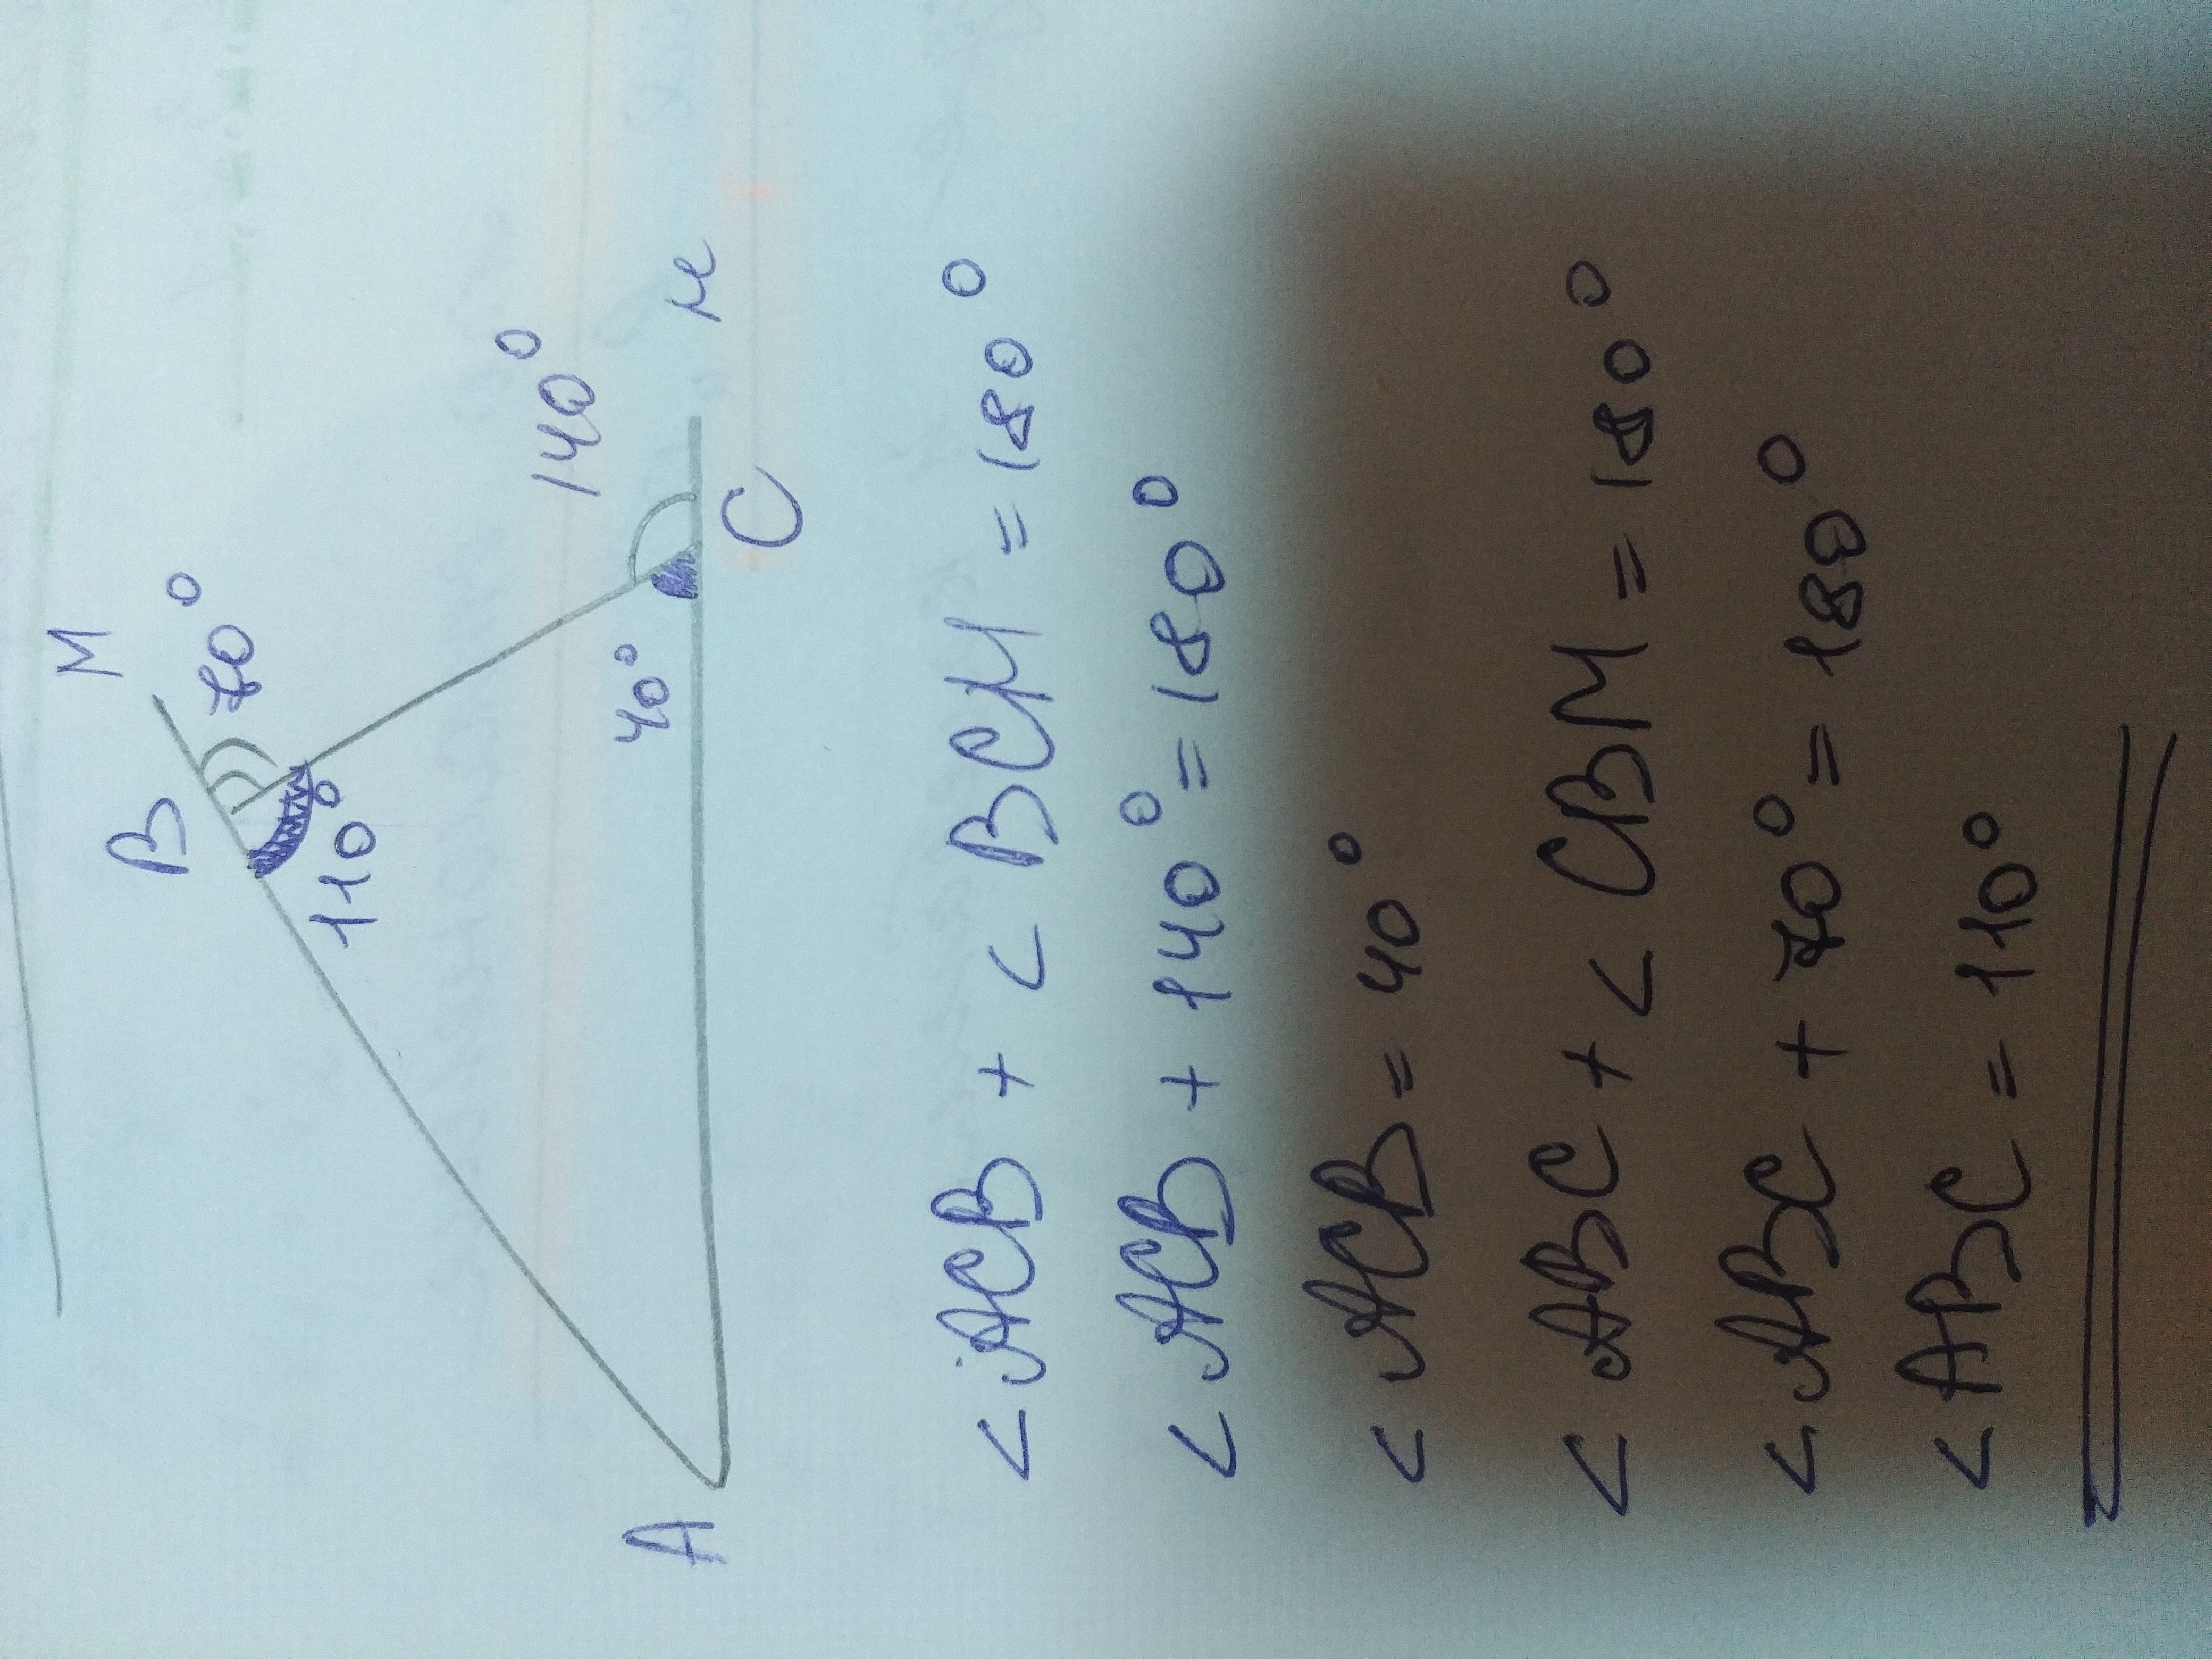 M
B 70°
110°
140°
40°
A C н
< ACB + < BCM = 180°
< ACB + 140° = 180°
< ACB = 40°
< ABC + < CBM = 180°
< ABC + 70° = 180°
< ABC = 110°